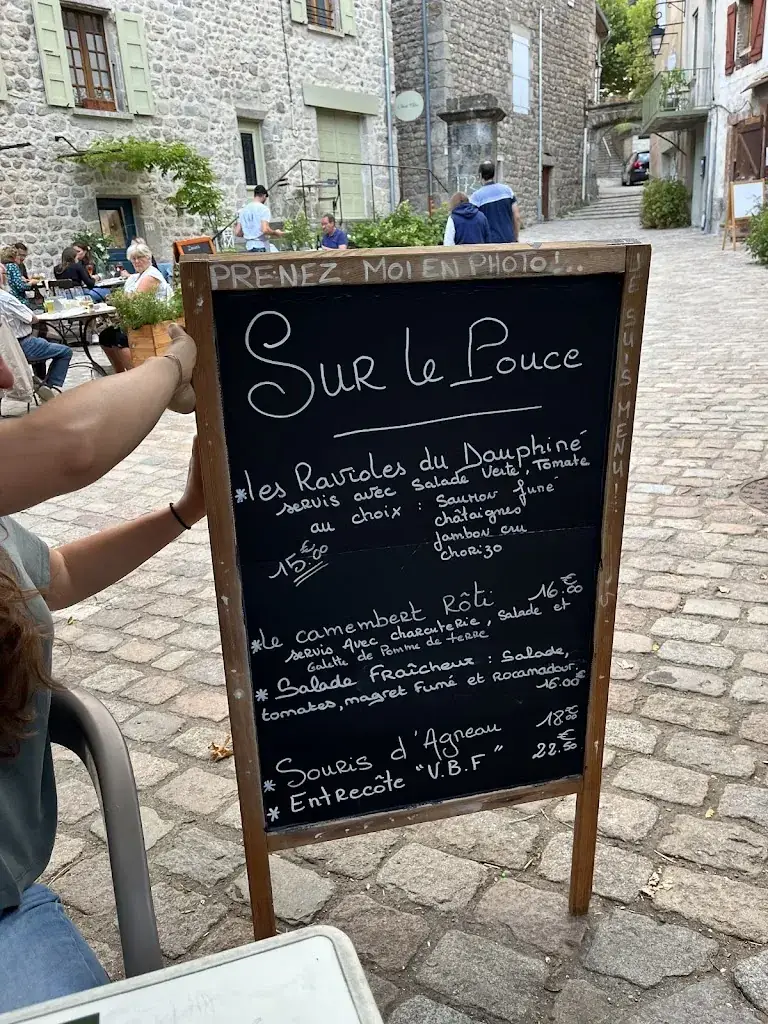 PRENEZ MOI EN PHOTO!..
JE SUIS MENU!
SUR le Pouce
*les Ravioles du Dauphiné
servis avec Salade Verte, Tomate
au choix : Saumon fumé
châtaignes
jambon cru
chorizo
15.€00
*le camembert Rôti 16.€00
servis avec charcuterie, salade et
Galette de Pomme de terre
* Salade Fraîcheur : Salade,
tomates, magret fumé et Rocamadour.
16.00€
* Souris d'Agneau 18.€00
* Entrecôte "V.B.F" 22.€50